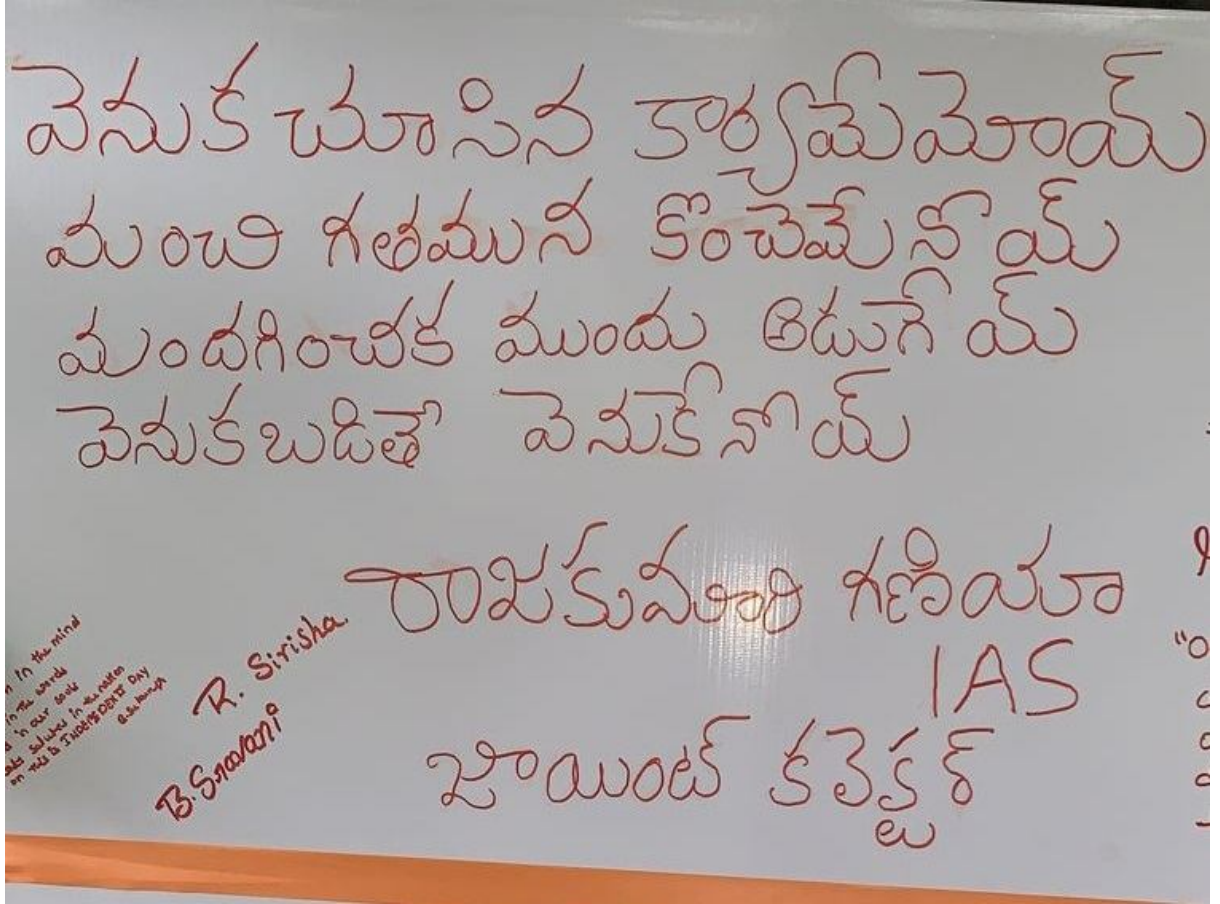 వెనుక చూసిన కార్యమేమోయ్
మంచి గతమున కొంచెమేనోయ్
మందగించక ముందు అడుగేయ్
వెనుకబడితే వెనుకేనోయ్
రాజకుమారి గణియా
IAS
జాయింట్ కలెక్టర్
R. Sirisha.
B. Sravani
in the mind
in the words
in our souls
salutes in the nation
on this is INDEPENDENT DAY